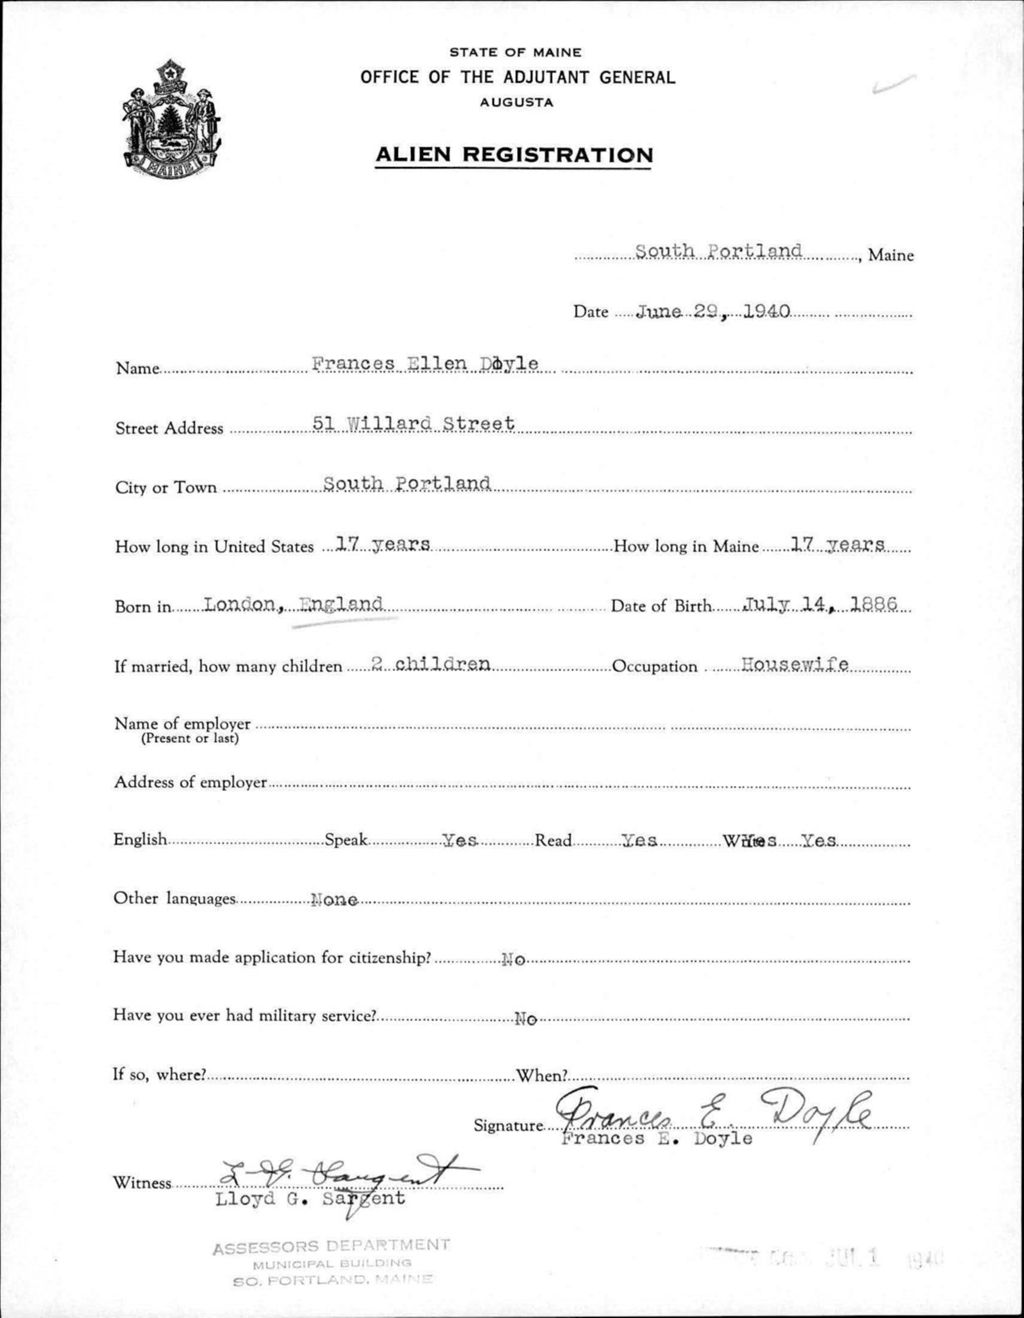 STATE OF MAINE
OFFICE OF THE ADJUTANT GENERAL
AUGUSTA
ALIEN REGISTRATION
MAINE
South Portland, Maine
Date June 29, 1940
Name Frances Ellen Doyle
Street Address 51 Willard Street
City or Town South Portland
How long in United States 17 years How long in Maine 17 years
Born in London, England Date of Birth July 14, 1886
If married, how many children 2 children Occupation Housewife
Name of employer
(Present or last)
Address of employer
English Speak Yes Read Yes Yes
Other languages None
Have you made application for citizenship? No
Have you ever had military service? No
If so, where? When?
Signature Frances E. Doyle
Frances E. Doyle
Witness L. G. Sargent
Lloyd G. Sargent
ASSESSORS DEPARTMENT
MUNICIPAL BUILDING
SO. PORTLAND, MAINE
JUL 1 1940